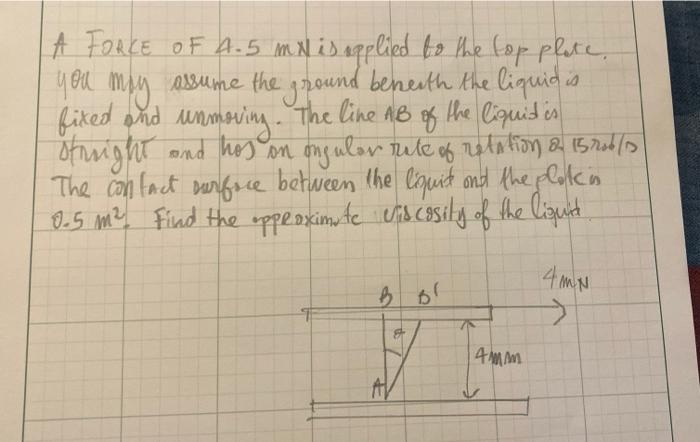 A FORCE OF 4.5 mN is applied to the top plate.
you may assume the ground beneath the liquid is
fixed and unmoving. The line AB of the liquid is
straight and has an angular rate of rotation of 15 rad/s
The contact surface between the liquid and the plate is
0.5 m². Find the approximate viscosity of the liquid.
4mN
B B'
θ
4mm
A